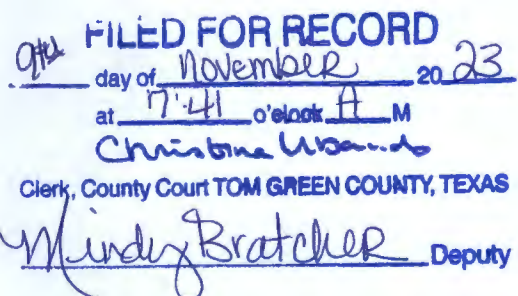 FILED FOR RECORD
9th day of November 2023
at 7:41 o'clock A M
Christina Ubando
Clerk, County Court TOM GREEN COUNTY, TEXAS
Mindy Bratcher Deputy